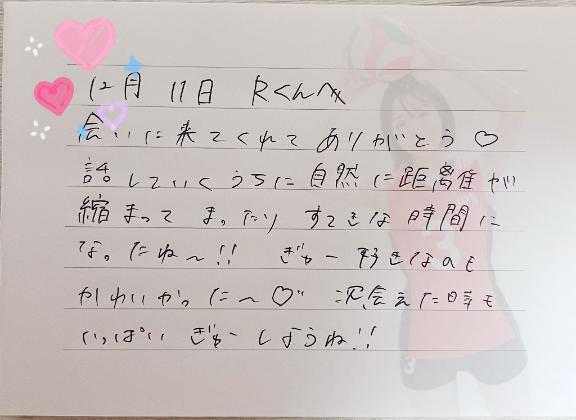 12月 11日 Rくんへ
会いに来てくれてありがとう♡
話していくうちに自然に距離が
縮まって まったりすてきな時間に
なったね〜!! ぎゅー好きなのも
かわいかった〜♡ 次会えた時も
いっぱい ぎゅーしようね!!